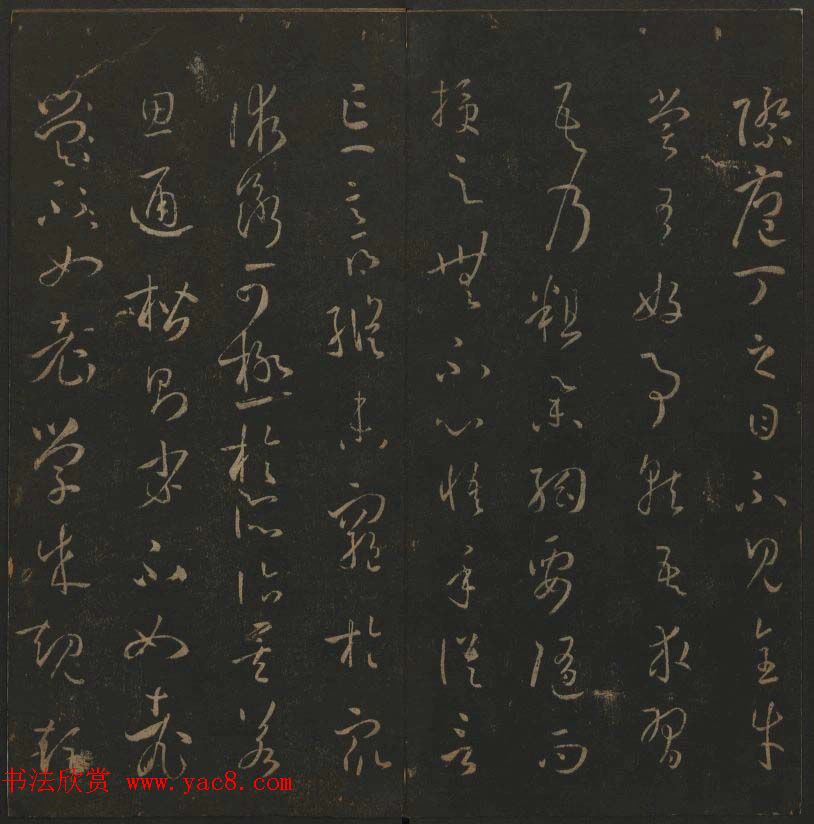 際庖丁之目不見全牛
嘗有好事就吾求習
吾乃粗舉綱要隨而
授之無不心悟手從言
忘意得縱未窮於衆
術斷可極於所詣矣若
思通楷則少不如老
如老學成規矩
书法欣赏 www.yac8.com